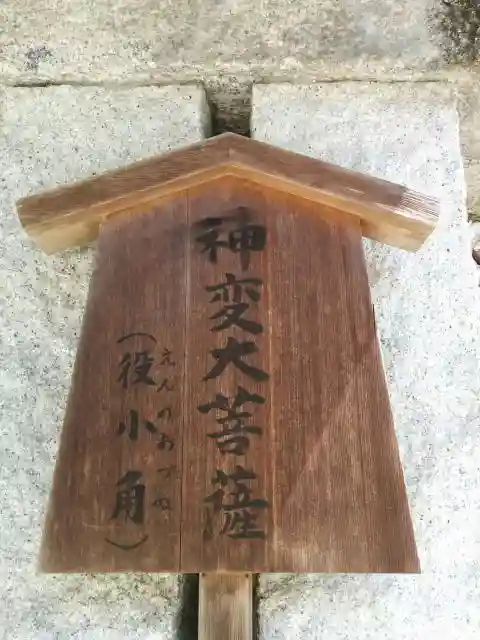 神変大菩薩
（役小角）
えんのおづぬ